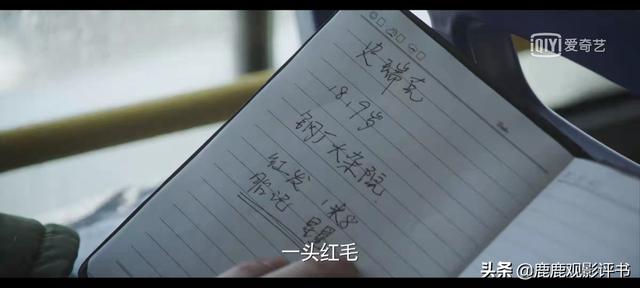 iQIYI 爱奇艺
史瑞克
18,19岁
钢厂大杂院
红发 1米8
胎记
一头红毛
头条 @鹿鹿观影评书